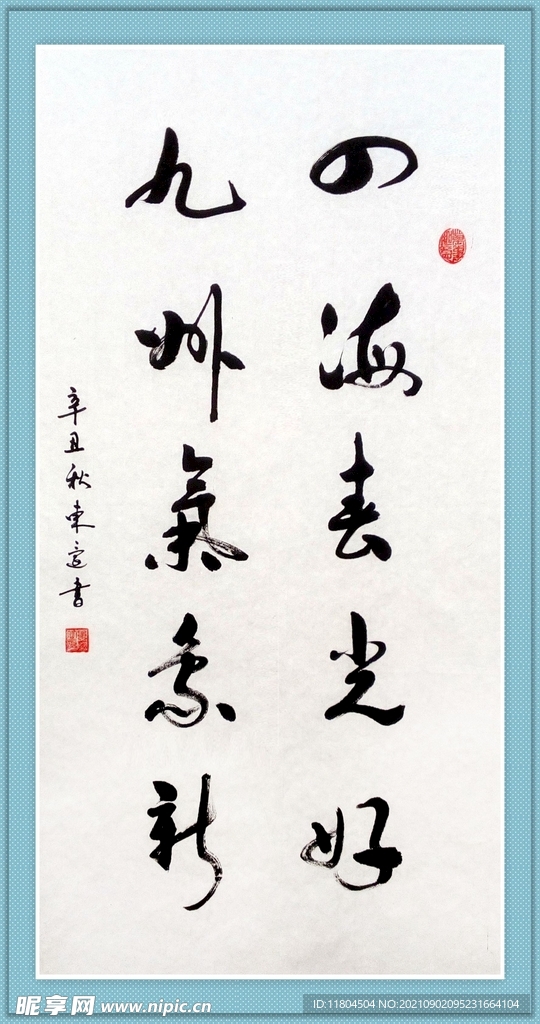 四海春光好
九州氣象新
辛丑秋東寫書
昵享网 www.nipic.cn
ID:11804504 NO:20210902095231664104